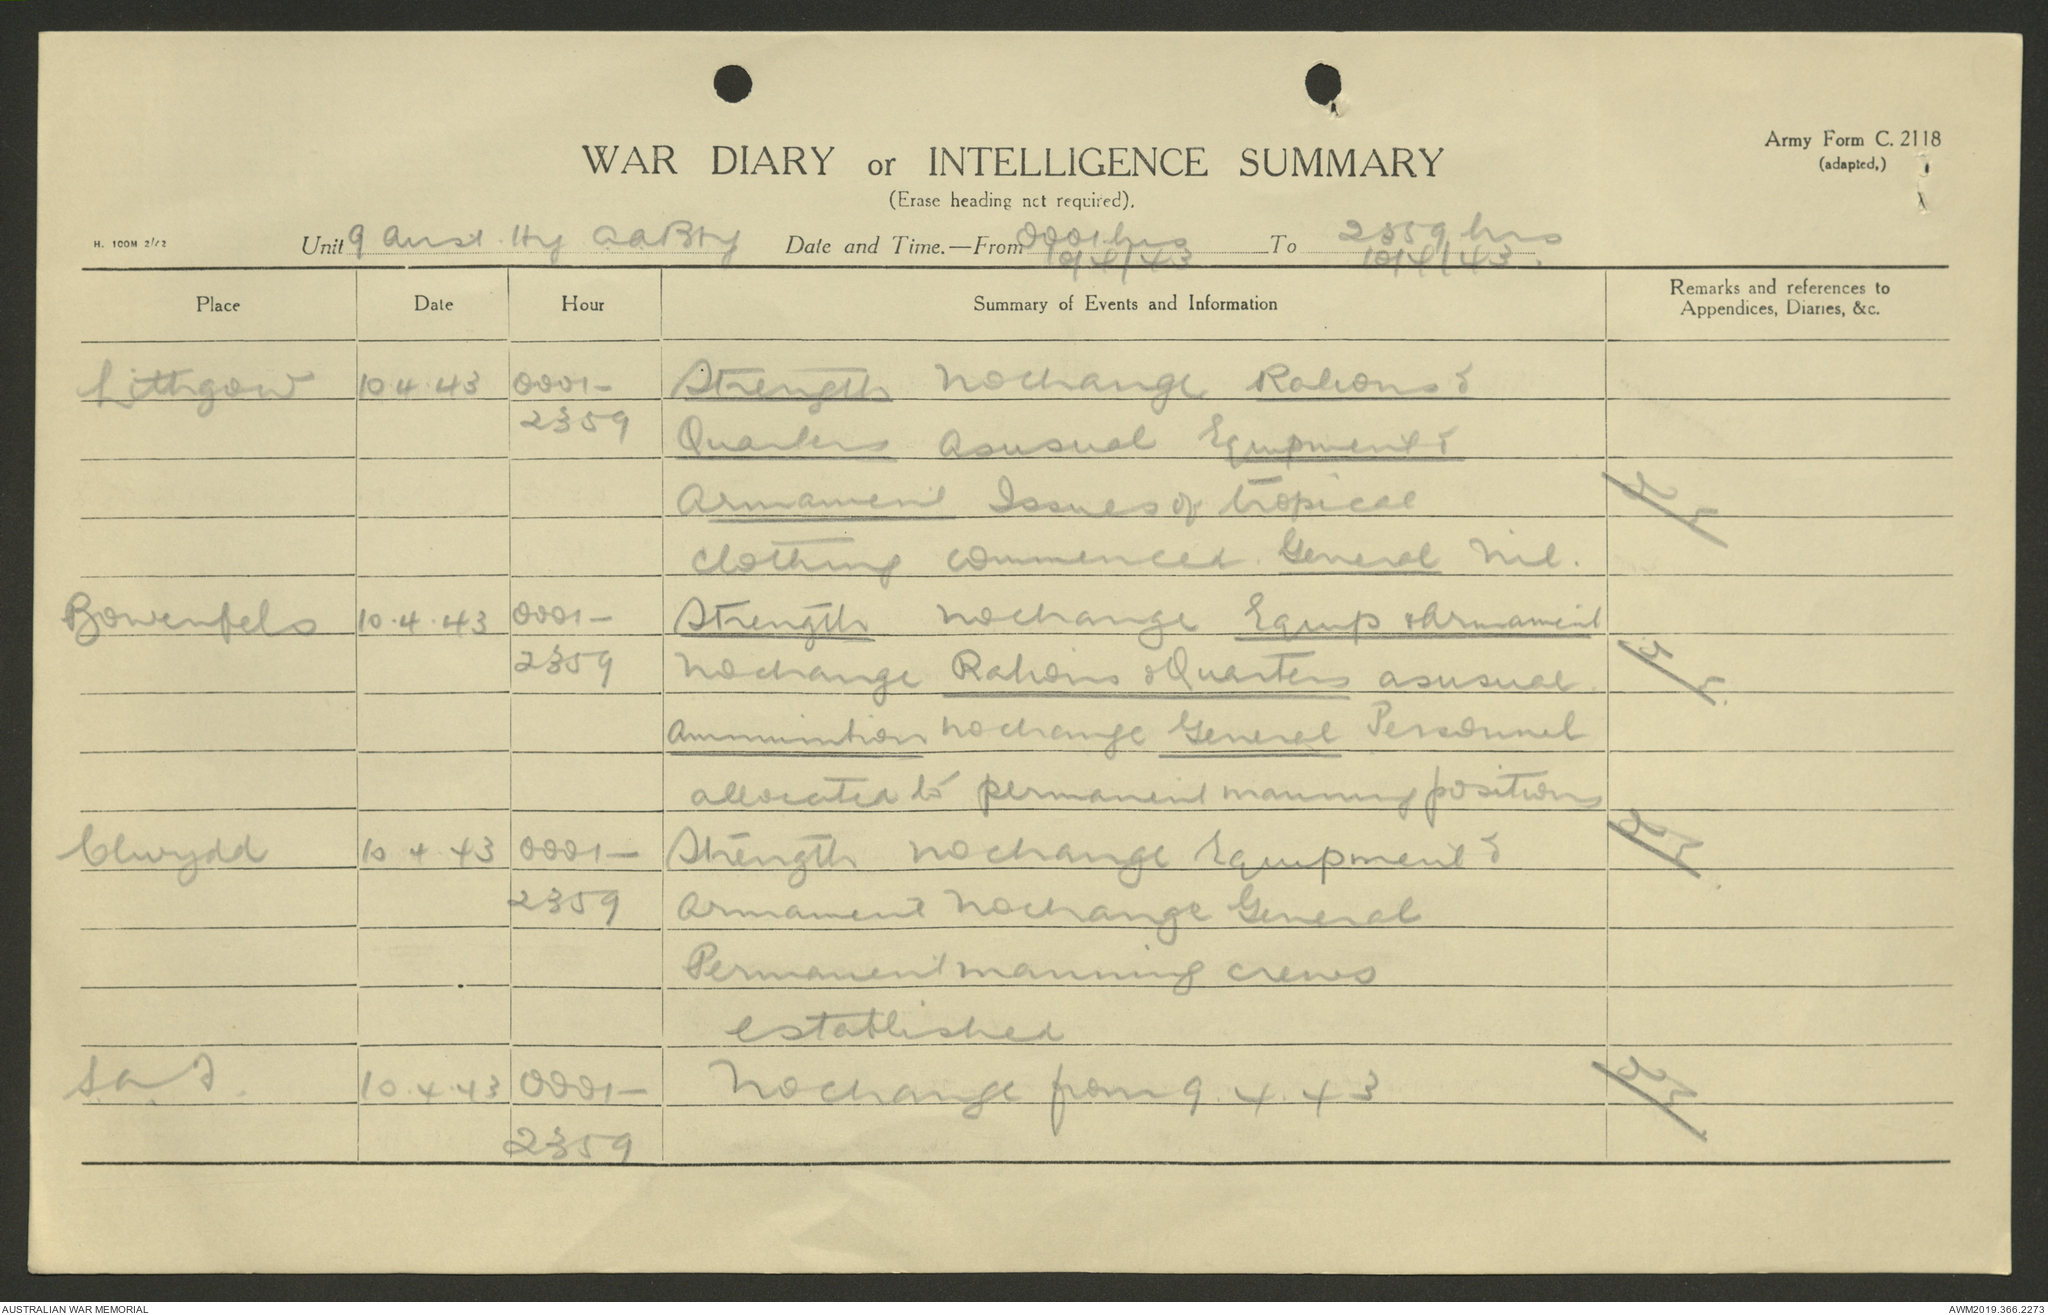 Army Form C. 2118
(adapted,)
WAR DIARY or INTELLIGENCE SUMMARY
(Erase heading not required).
H. 100M 2/42
Unit 9 Aust. Hy AABty Date and Time.—From 0001 hrs 10/4/43 To 2359 hrs 10/4/43.
Place Date Hour Summary of Events and Information Remarks and references to
Appendices, Diaries, &c.
Lithgow 10.4.43 0001- Strength No change Rations &
2359 Quarters as usual Equipment &
Armament Issues of tropical
clothing commenced. General Nil.
Bowenfels 10.4.43 0001- Strength No change Equip & Armament
2359 No change Rations & Quarters as usual
Ammunition no change General Personnel
allocated to permanent manning positions
Clwydd 10 4 43 0001- Strength no change Equipment &
2359 Armament No change General
Permanent manning crews
established
10.4.43 0001- No change from 9.4.43
2359
AUSTRALIAN WAR MEMORIAL
AWM2019.366.2273